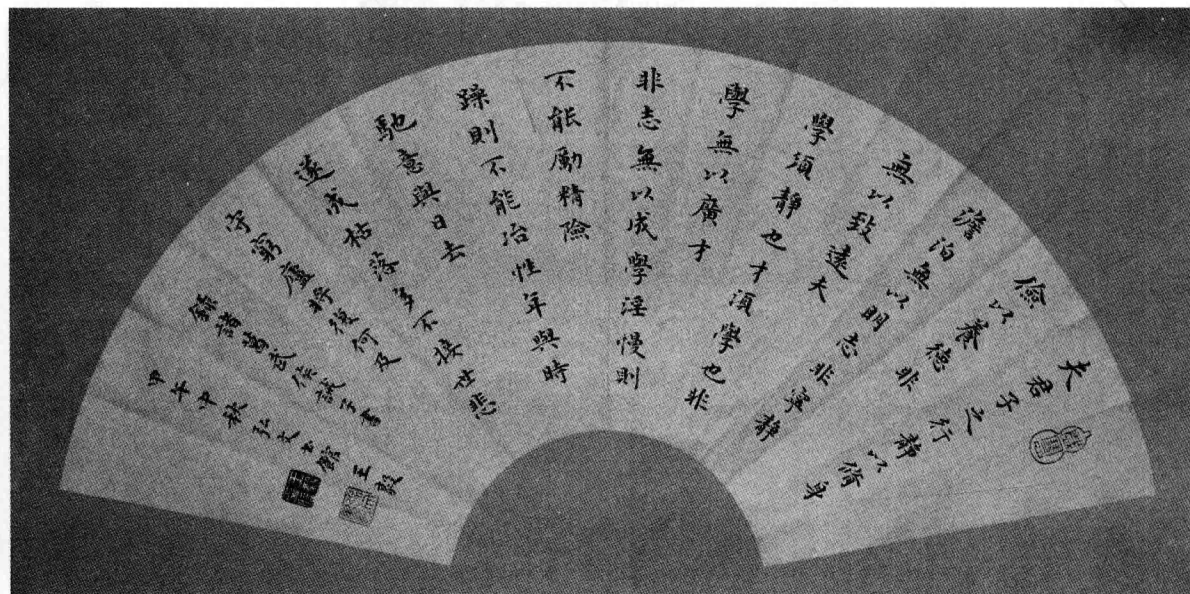 夫君子之行靜以脩身
儉以養德非
澹泊無以明志非寧靜
無以致遠夫
學須靜也才須學也非
學無以廣才
非志無以成學淫慢則
不能勵精險
躁則不能冶性年與時
馳意與日去
遂成枯落多不接世悲
守窮廬將復何及
錄諸葛武侯誡子書
甲午中秋弘文书館王